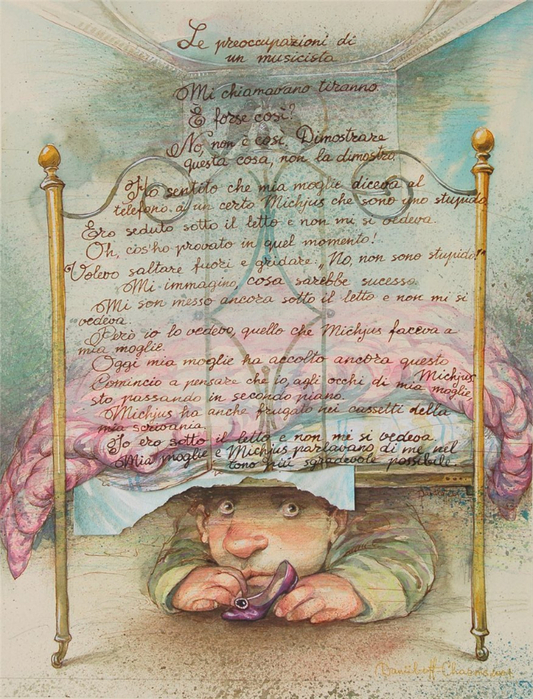 Le preoccupazioni di
un musicista
Mi chiamavano tiranno.
E forse così?
No, non è così. Dimostrare
questa cosa, non la dimostro.
Ho sentito che mia moglie diceva al
telefono a un certo Michjus che sono uno stupido.
Ero seduto sotto il letto e non mi si vedeva.
Oh, cos'ho provato in quel momento!
Volevo saltare fuori e gridare: „No, non sono stupido!"
Mi immagino, cosa sarebbe sucesso
Mi son messo ancora sotto il letto e non mi si
vedeva.
Però io lo vedevo, quello che Michjus faceva a
mia moglie.
Oggi mia moglie ha accolto ancora questo
Michjus
Comincio a pensare che io, agli occhi di mia moglie,
sto passando in secondo piano.
Michjus ha anche frugato nei cassetti della
mia scrivania.
Io ero sotto il letto e non mi si vedeva.
Mia moglie e Michjus parlavano di me nel
tono più sgradevole possibile